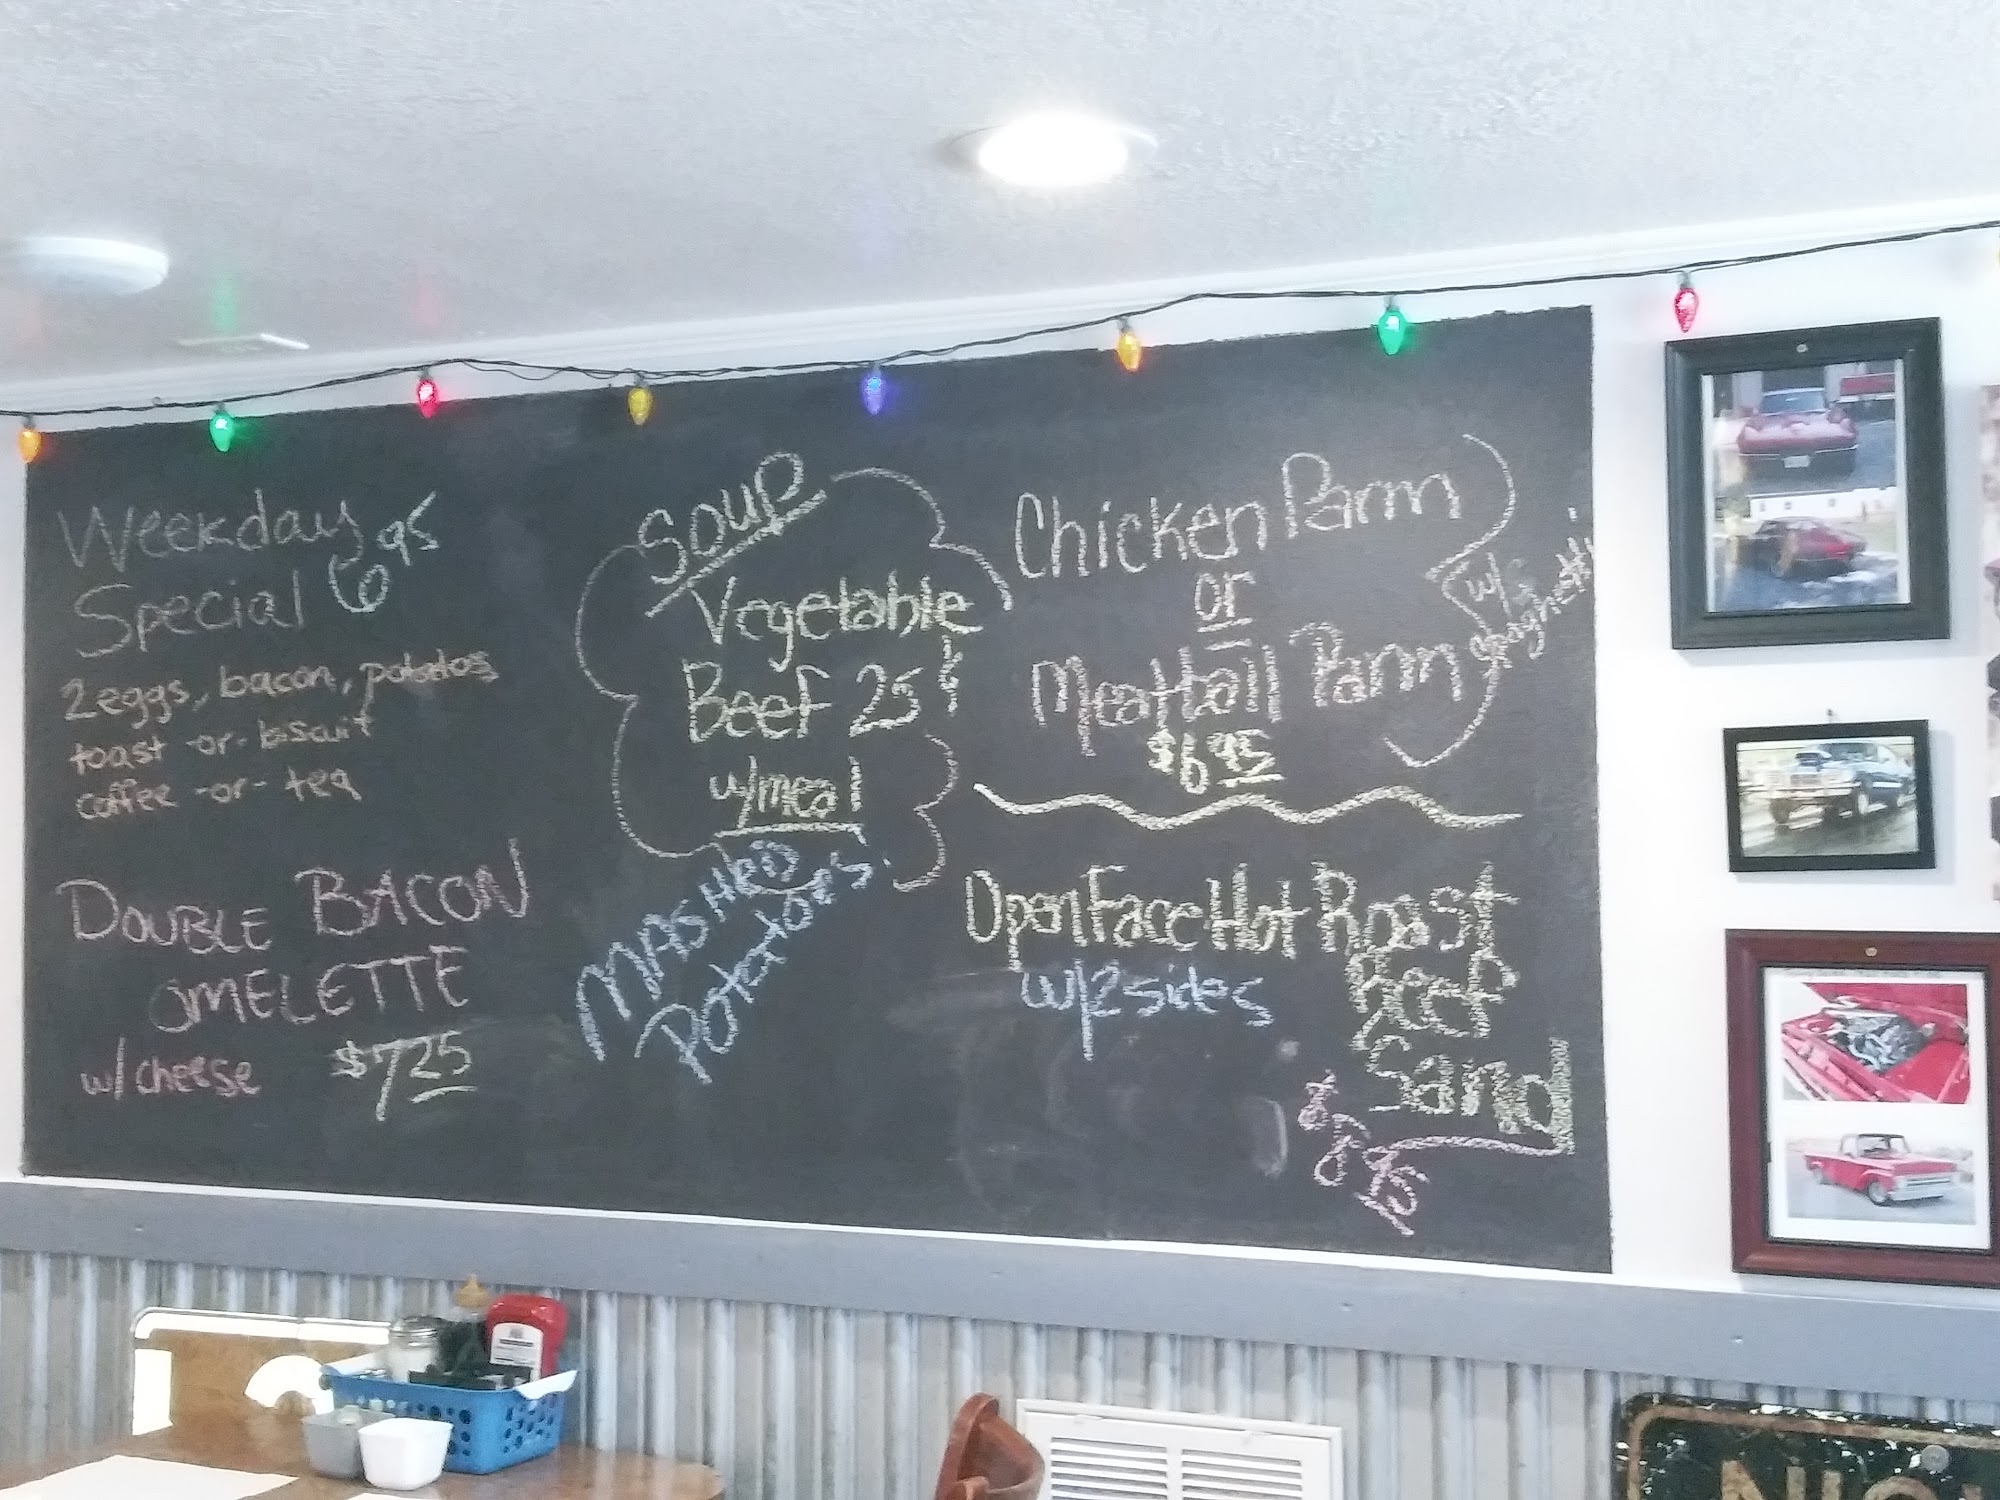 Weekday
Special 6 95
2 eggs, bacon, potatoes
toast -or- biscuit
coffee -or- tea
DOUBLE BACON
OMELETTE
w/ cheese $7 25
Soup
Vegetable
Beef 25¢
w/meal
MASHED
Potatoes
Chicken Parm
or
Meatball Parm
$6 95
w/
spaghetti
Open Face Hot Roast
Beef
Sand
w/ 2 sides
95